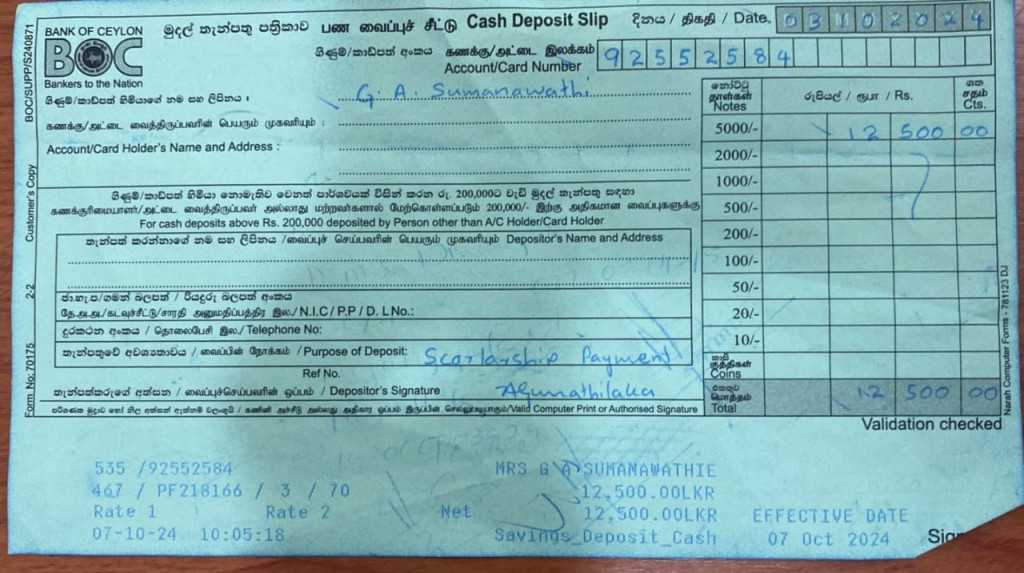 BANK OF CEYLON
BOC
Bankers to the Nation
මුදල් තැන්පතු පත්‍රිකාව பண வைப்புச் சீட்டு Cash Deposit Slip
දිනය / திகதி / Date. 03102024
ගිණුම්/කාඩ්පත් අංකය கணக்கு/அட்டை இலக்கம்
Account/Card Number 92552584
ගිණුම්/කාඩ්පත් හිමියාගේ නම සහ ලිපිනය :
G. A. Sumanawathi
கணக்கு/அட்டை வைத்திருப்பவரின் பெயரும் முகவரியும் :
Account/Card Holder's Name and Address :
ගිණුම්/කාඩ්පත් හිමියා නොමැතිව වෙනත් පාර්ශවයක් විසින් කරන රු. 200,000ට වැඩි මුදල් තැන්පතු සඳහා
கணக்குரிமையாளர்/அட்டை வைத்திருப்பவர் அல்லாது மற்றவர்களால் மேற்கொள்ளப்படும் 200,000/- இற்கு அதிகமான வைப்புகளுக்கு
For cash deposits above Rs. 200,000 deposited by Person other than A/C Holder/Card Holder
තැන්පත් කරන්නාගේ නම සහ ලිපිනය /வைப்புச் செய்பவரின் பெயரும் முகவரியும் Depositor's Name and Address
ජා.හැ.ප/ගමන් බලපත් / රියදුරු බලපත් අංකය
தே.அ.அ./கடவுச்சீட்டு/சாரதி அனுமதிப்பத்திர இல./N.I.C/P.P/D. L No.:
දුරකථන අංකය / தொலைபேசி இல./Telephone No:
තැන්පතුවේ අවශ්‍යතාවය / வைப்பின் நோக்கம் / Purpose of Deposit: Scorlarship Payment
Ref No.
තැන්පත්කරුගේ අත්සන / வைப்புச்செய்பவரின் ஒப்பம் / Depositor's Signature Agunathilaka
/Valid Computer Print or Authorised Signature
නෝට්ටු
தாள்கள்
Notes
රුපියල් / ரூபா / Rs.
ශත
சதம்
Cts.
5000/- 12 500 00
2000/-
1000/-
500/-
200/-
100/-
50/-
20/-
10/-
කාසි
குத்திகள்
Coins
එකතුව
மொத்தம்
Total 12 500 00
Validation checked
BOC/SUPP/S240871
Customer's Copy
2-2
Form No: 70175
Narah Computer Forms - 781123 DJ
535 /92552584 MRS G A SUMANAWATHIE
467 / PF218166 / 3 / 70 12,500.00LKR
Rate 1 Rate 2 Net 12,500.00LKR EFFECTIVE DATE
07-10-24 10:05:18 Savings_Deposit_Cash 07 Oct 2024